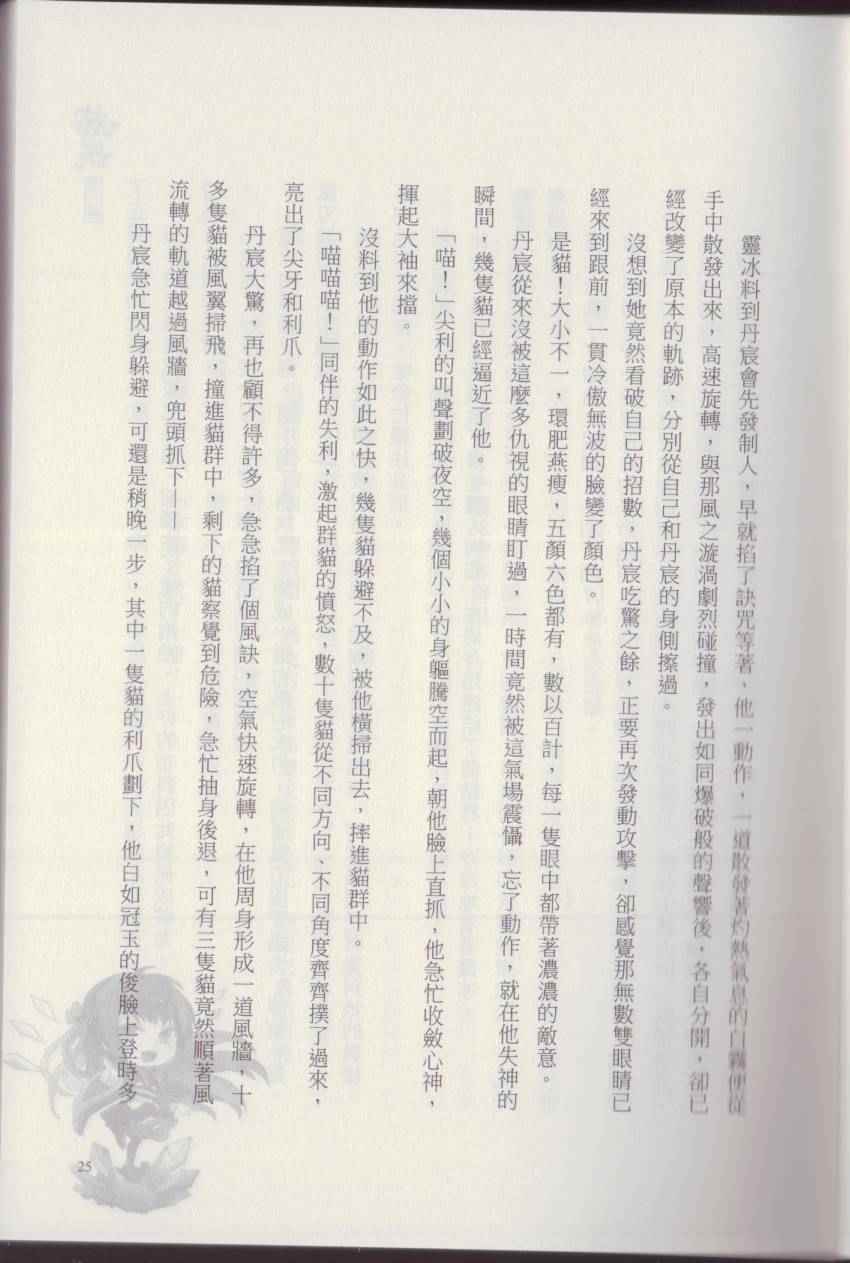 靈冰料到丹宸會先發制人，早就掐了訣咒等著，他一動作，一道散發著灼熱氣息的白霧便從
手中散發出來，高速旋轉，與那風之漩渦劇烈碰撞，發出如同爆破般的聲響後，各自分開，卻已
經改變了原本的軌跡，分別從自己和丹宸的身側擦過。
沒想到她竟然看破自己的招數，丹宸吃驚之餘，正要再次發動攻擊，卻感覺那無數雙眼睛已
經來到跟前，一貫冷傲無波的臉變了顏色。
是貓！大小不一，環肥燕瘦，五顏六色都有，數以百計，每一隻眼中都帶著濃濃的敵意。
丹宸從來沒被這麼多仇視的眼睛盯過，一時間竟然被這氣場震懾，忘了動作，就在他失神的
瞬間，幾隻貓已經逼近了他。
「喵！」尖利的叫聲劃破夜空，幾個小小的身軀騰空而起，朝他臉上直抓，他急忙收斂心神，
揮起大袖來擋。
沒料到他的動作如此之快，幾隻貓躲避不及，被他橫掃出去，摔進貓群中。
「喵喵喵！」同伴的失利，激起群貓的憤怒，數十隻貓從不同方向、不同角度齊齊撲了過來，
亮出了尖牙和利爪。
丹宸大驚，再也顧不得許多，急急掐了個風訣，空氣快速旋轉，在他周身形成一道風牆，十
多隻貓被風翼掃飛，撞進貓群中，剩下的貓察覺到危險，急忙抽身後退，可有三隻貓竟然順著風
流轉的軌道越過風牆，兜頭抓下——
丹宸急忙閃身躲避，可還是稍晚一步，其中一隻貓的利爪劃下，他白如冠玉的俊臉上登時多
25